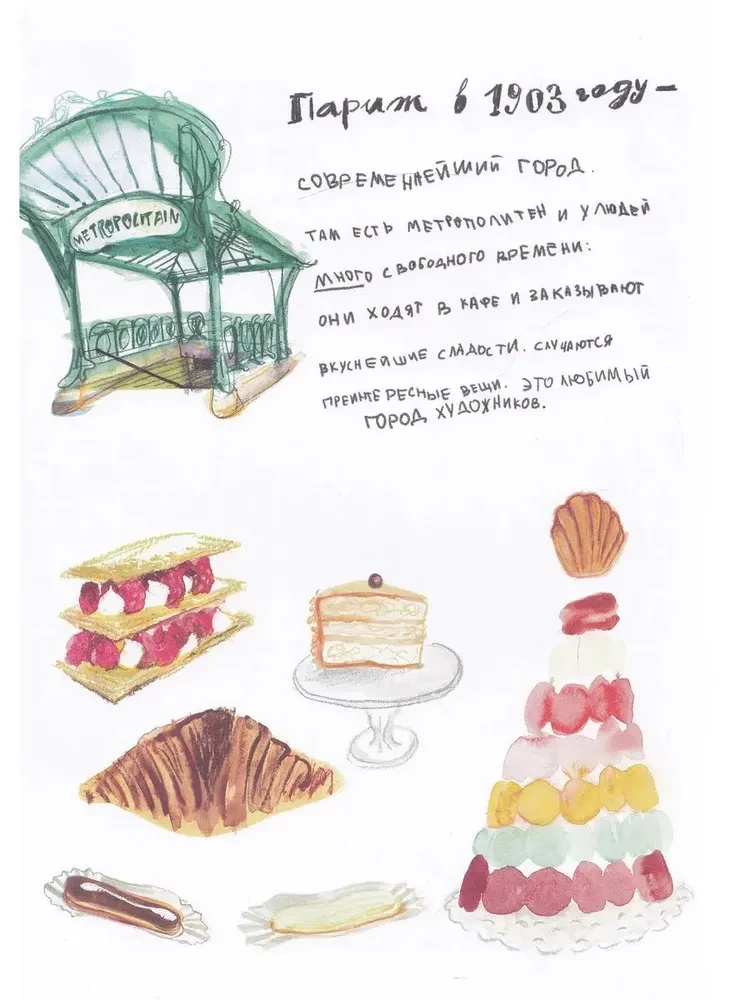 METROPOLITAIN
Париж в 1903 году –
СОВРЕМЕННЕЙШИЙ ГОРОД.
ТАМ ЕСТЬ МЕТРОПОЛИТЕН И У ЛЮДЕЙ
МНОГО СВОБОДНОГО ВРЕМЕНИ:
ОНИ ХОДЯТ В КАФЕ И ЗАКАЗЫВАЮТ
ВКУСНЕЙШИЕ СЛАДОСТИ. СЛУЧАЮТСЯ
ПРЕИНТЕРЕСНЫЕ ВЕЩИ. ЭТО ЛЮБИМЫЙ
ГОРОД ХУДОЖНИКОВ.